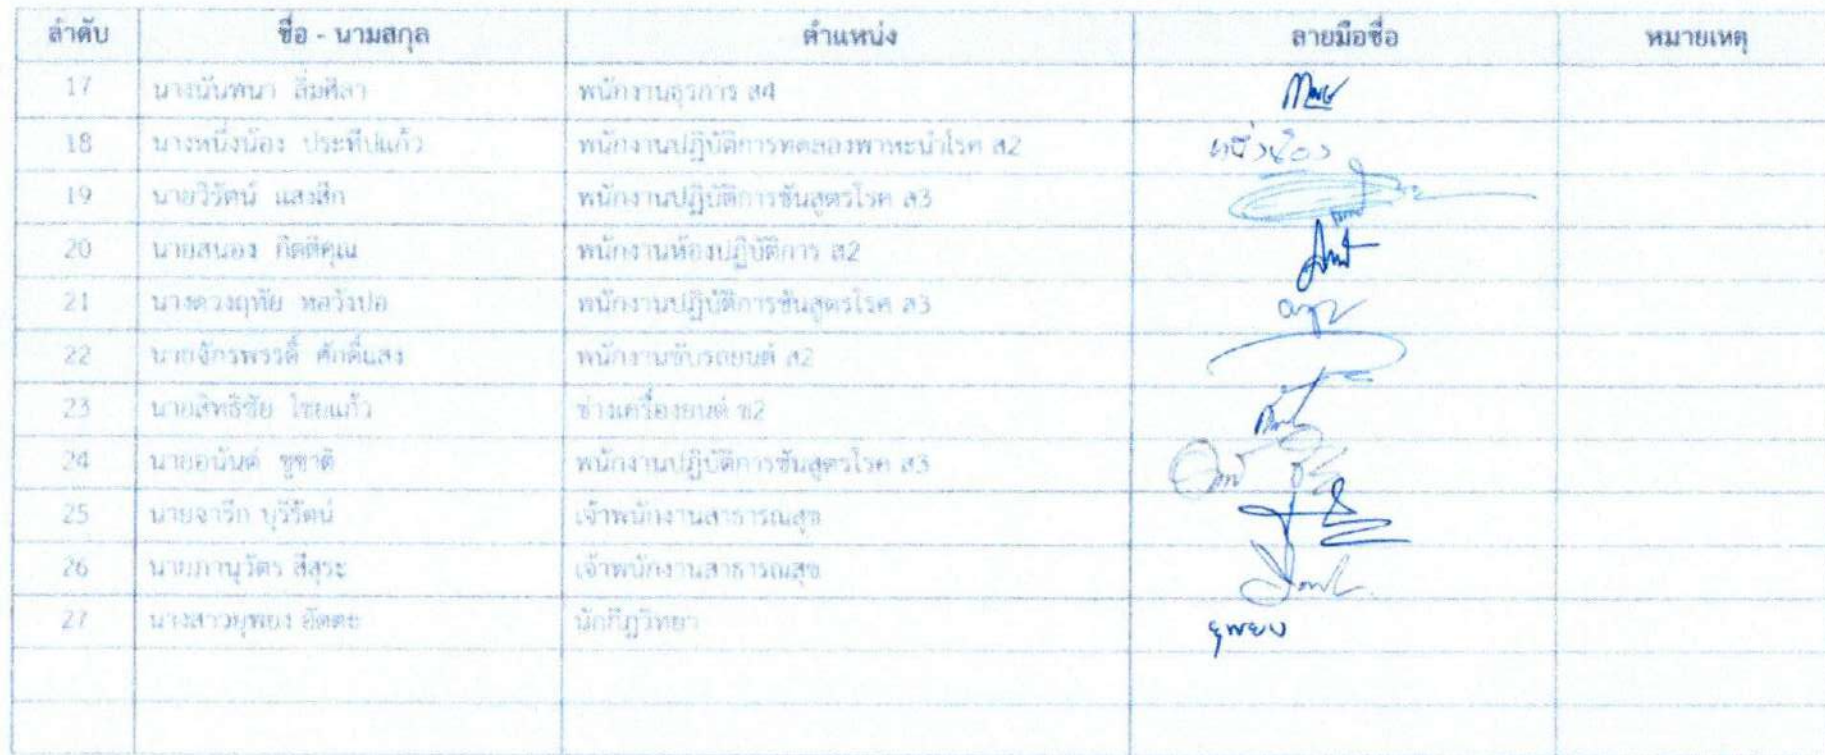 ลำดับ ชื่อ - นามสกุล ตำแหน่ง ลายมือชื่อ หมายเหตุ
17 นางนันพนา ลิ่มศิลา พนักงานธุรการ ส4
18 นางหนึ่งน้อง ประทีปแก้ว พนักงานปฏิบัติการทดลองพาหะนำโรค ส2 หนึ่งน้อง
19 นายวิรัตน์ แสงสึก พนักงานปฏิบัติการชันสูตรโรค ส3
20 นายสนอง กิตติคุณ พนักงานห้องปฏิบัติการ ส2
21 นางดวงฤทัย หลวังปอ พนักงานปฏิบัติการชันสูตรโรค ส3
22 นายจักรพรรดิ์ ศักดิ์แสง พนักงานขับรถยนต์ ส2
23 นายสิทธิชัย ไชยแก้ว ช่างเครื่องยนต์ ช2
24 นายอนันต์ ชูชาติ พนักงานปฏิบัติการชันสูตรโรค ส3
25 นายจารึก บุรีรัตน์ เจ้าพนักงานสาธารณสุข
26 นายภานุวัตร สีสุระ เจ้าพนักงานสาธารณสุข
27 นางสาวยุพยง อัตตะ นักกีฏวิทยา ยุพยง